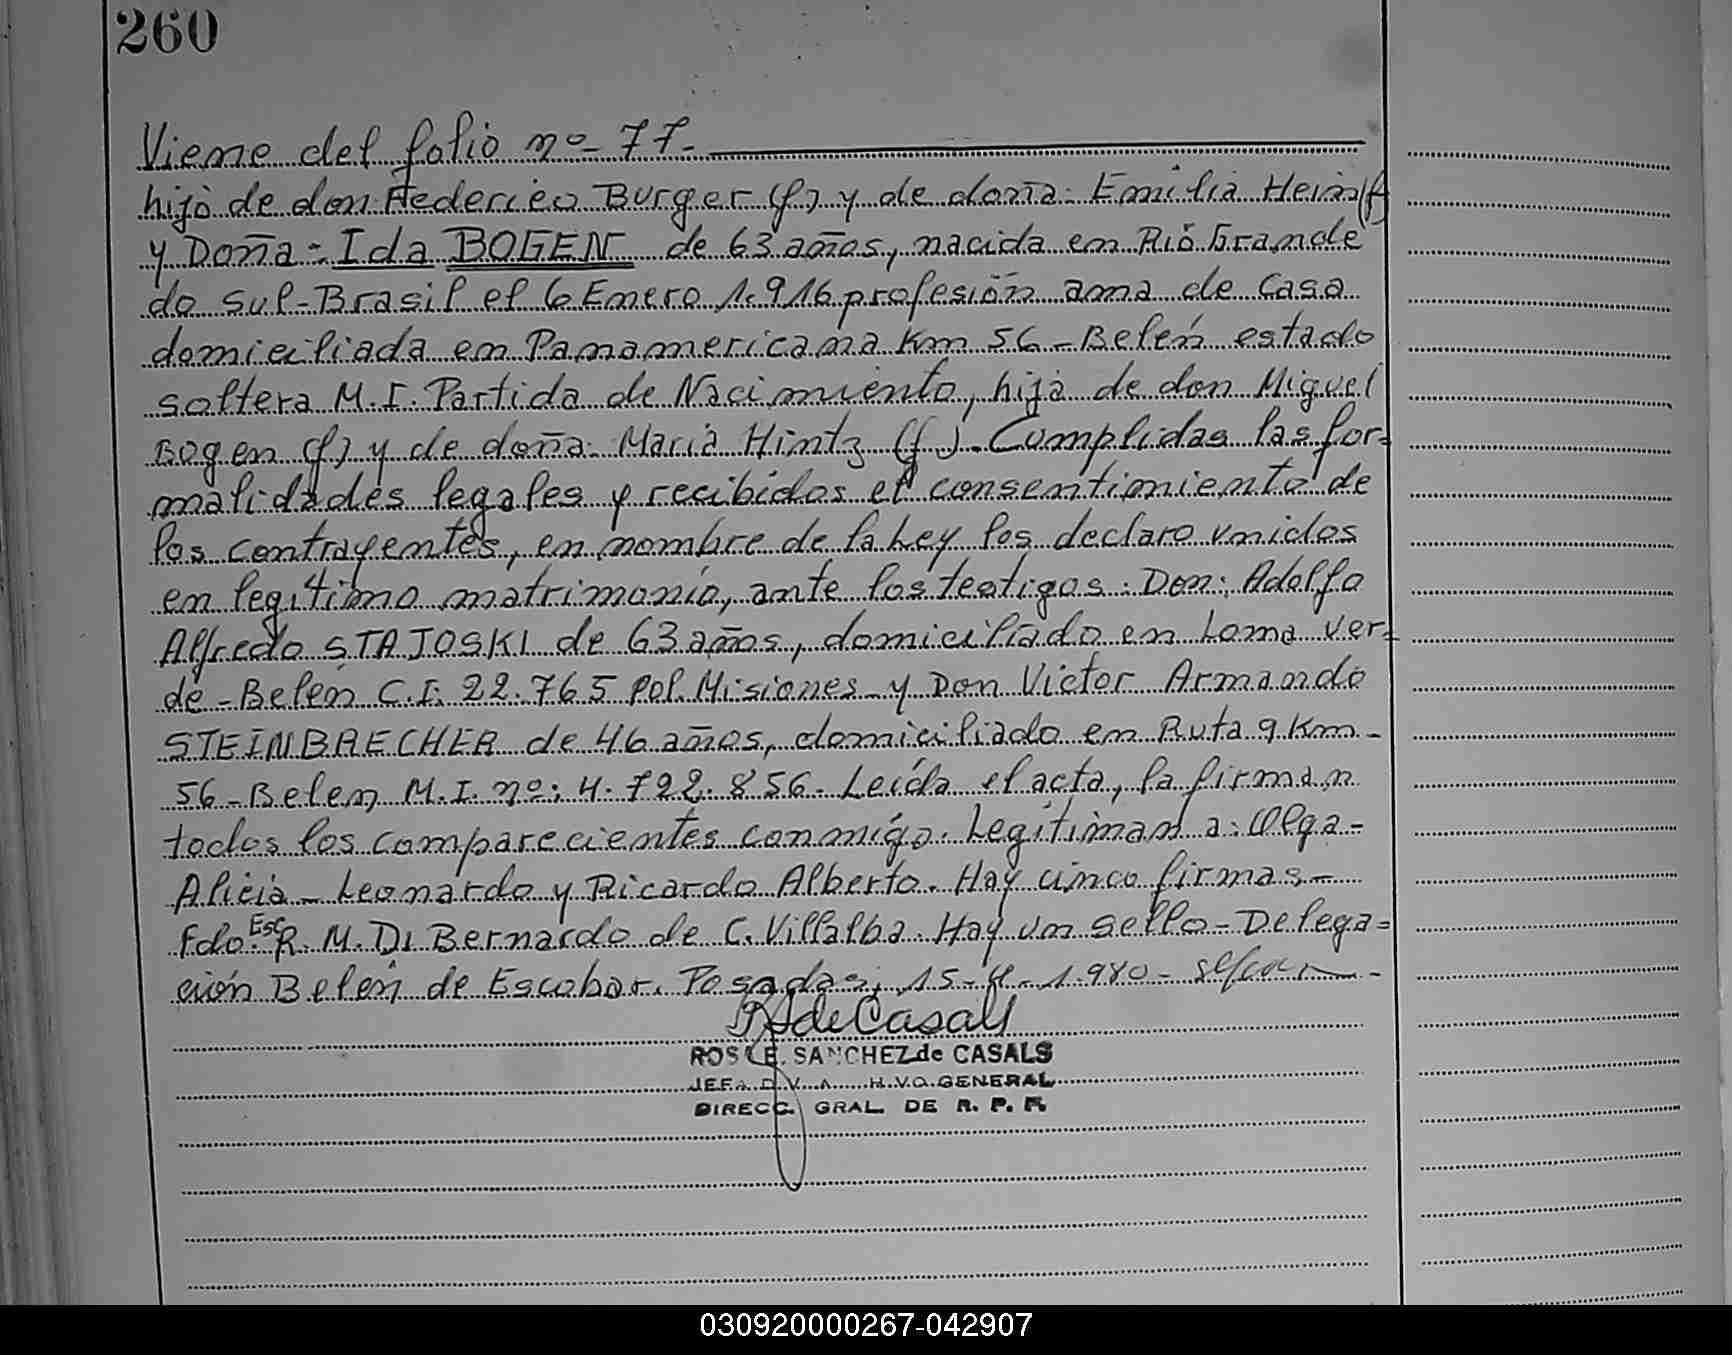 260
Viene del folio nº- 77-
hijo de don Federico Burger (f) y de doña: Emilia Hein (f)
y Doña: Ida BOGEN de 63 años, nacida en Rio Grande
do sul-Brasil el 6 Enero 1.916 profesión ama de casa
domiciliada en Panamericana Km 56-Belén estado
soltera M.I. Partida de Nacimiento, hija de don Miguel
Bogen (f) y de doña: Maria Hintz (f). Cumplidas las for=
malidades legales y recibidos el consentimiento de
los contrayentes, en nombre de la Ley los declaro unidos
en legítimo matrimonio, ante los testigos: Don: Adolfo
Alfredo STAJOSKI de 63 años, domiciliado en Loma ver=
de-Belén C.I. 22.765 Pol. Misiones-y Don Victor Armando
STEINBRECHER de 46 años, domiciliado en Ruta 9 Km-
56-Belen M.I. nº: 4.722.856. Leída el acta, la firman
todos los comparecientes conmigo. Legitiman a: Olga-
Alicia- Leonardo y Ricardo Alberto. Hay cinco firmas-
Fdo: Esc R. M. Di Bernardo de C. Villalba. Hay un sello-Delega=
ción Belén de Escobar. Posadas, 15- -1.980-
de Casals
ROS E. SANCHEZ de CASALS
JEFA D V. A H.VO. GENERAL
DIRECC. GRAL. DE R. P. P.
030920000267-042907